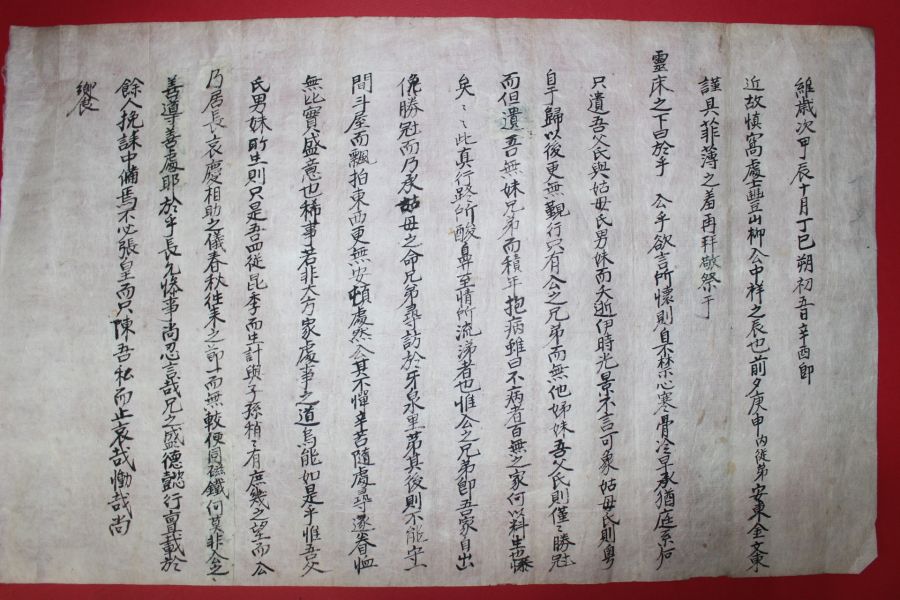 維歲次甲辰十月丁巳朔初五日辛酉卽
近故愼窩處士豊山柳公中祥之辰也前夕庚申內從弟安東金文東
謹具菲薄之羞再拜敬祭于
靈床之下曰於乎 公乎欲言所懷則自不禁心寒骨冷早承猶庭系
只遺吾父氏與姑母氏男妹而夭逝伊時光景不言可象姑母氏則粤
自于歸以後更無覲行只有公之兄弟而無他姊妹吾父氏則僅僅勝冠
而但遺吾無妹兄弟而積年抱病雖曰不病者百無之家何以料生也
矣矣此眞行路所酸鼻至情所流涕者也惟公之兄弟卽吾家自出
勝冠而乃承姑母之命兄弟尋訪於牙泉里第其後則不能守一
間斗屋而飄拍東西更無安頓處然公其不憚辛苦隨處尋逐眷恤
無比實盛意也稀事若非大方家處事之道烏能如是乎惟吾父
氏男妹所生則只是吾四從昆季而生計與子孫稍稍有庶幾之望而公
乃居長哀慶相助之儀春秋徃來之節十而無較便同磁鐵何莫非公之
善導善處耶於乎長兄慘事尚忍言哉兄之盛德懿行亶載於
餘人挽誄中備焉不必張皇而只陳吾私而止哀哉慟哉尚
饗